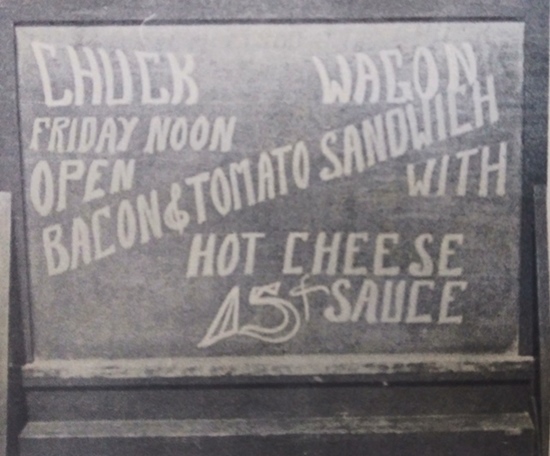 CHUCK WAGON
FRIDAY NOON
OPEN
BACON & TOMATO SANDWICH
WITH
HOT CHEESE
45¢ SAUCE